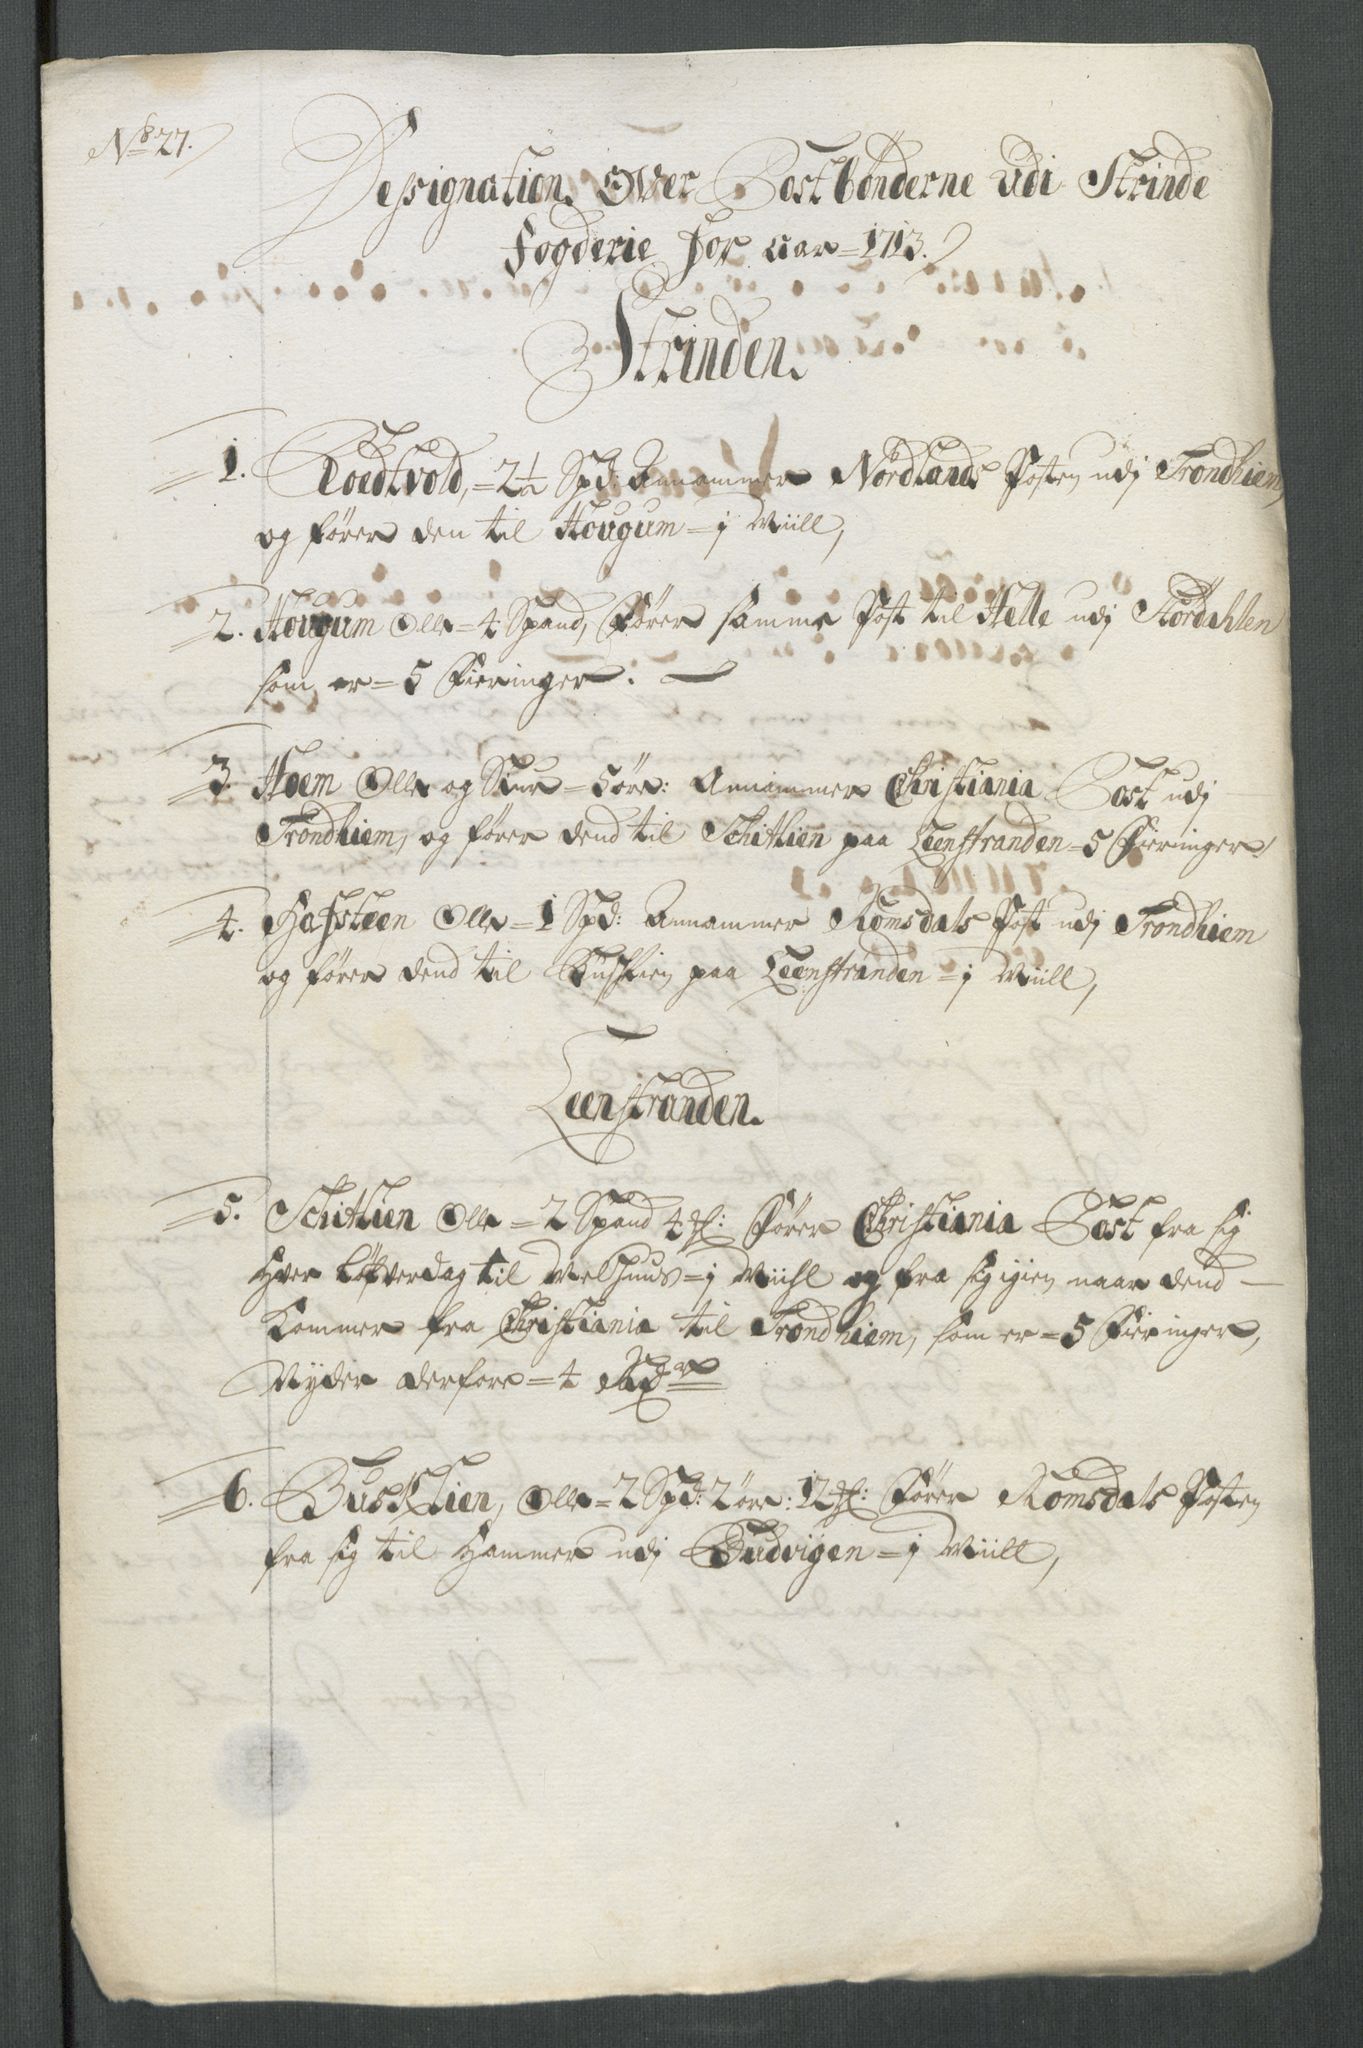 No 27.
Designation Over Postbönderne udi Strinde
Fogderie for aar = 1713.
Strinden.
1. Roedtvold, = 2½ Spd: Annammer Nordlands Posten udj Trondhiem,
og förer den til Hougum = j Miill,
2. Hougum Olle = 4 Spand, Förer samme Post til Helle udj Stördahlen
som er = 5 Fieringer:
3. Hoem Olle og Stur = 5 öre: Annammer Christiania Post udj
Trondhiem, og förer dend til Schitlien paa Leenstranden = 5 Fieringer,
4. Hafsteen Olle = 1 Spd: Annammer Romsdals Post udj Trondhiem
og förer dend til Busklien paa Leenstranden = j Miill,
Leenstranden.
5. Schitlien Olle = 2 Spand 4 Förer Christiania Post fra sig
hver Löfverdag til Melhuus = j Miihl og fra sig igien naar dend
kommer fra Christiania til Trondhiem, som er = 5 Fieringer,
Nyder derfore = 4
6. Busklien, Olle = 2 Spd: 2 öre: 12 Förer Romsdals Posten
fra sig til Hammer udj Budvigen = j Miill,